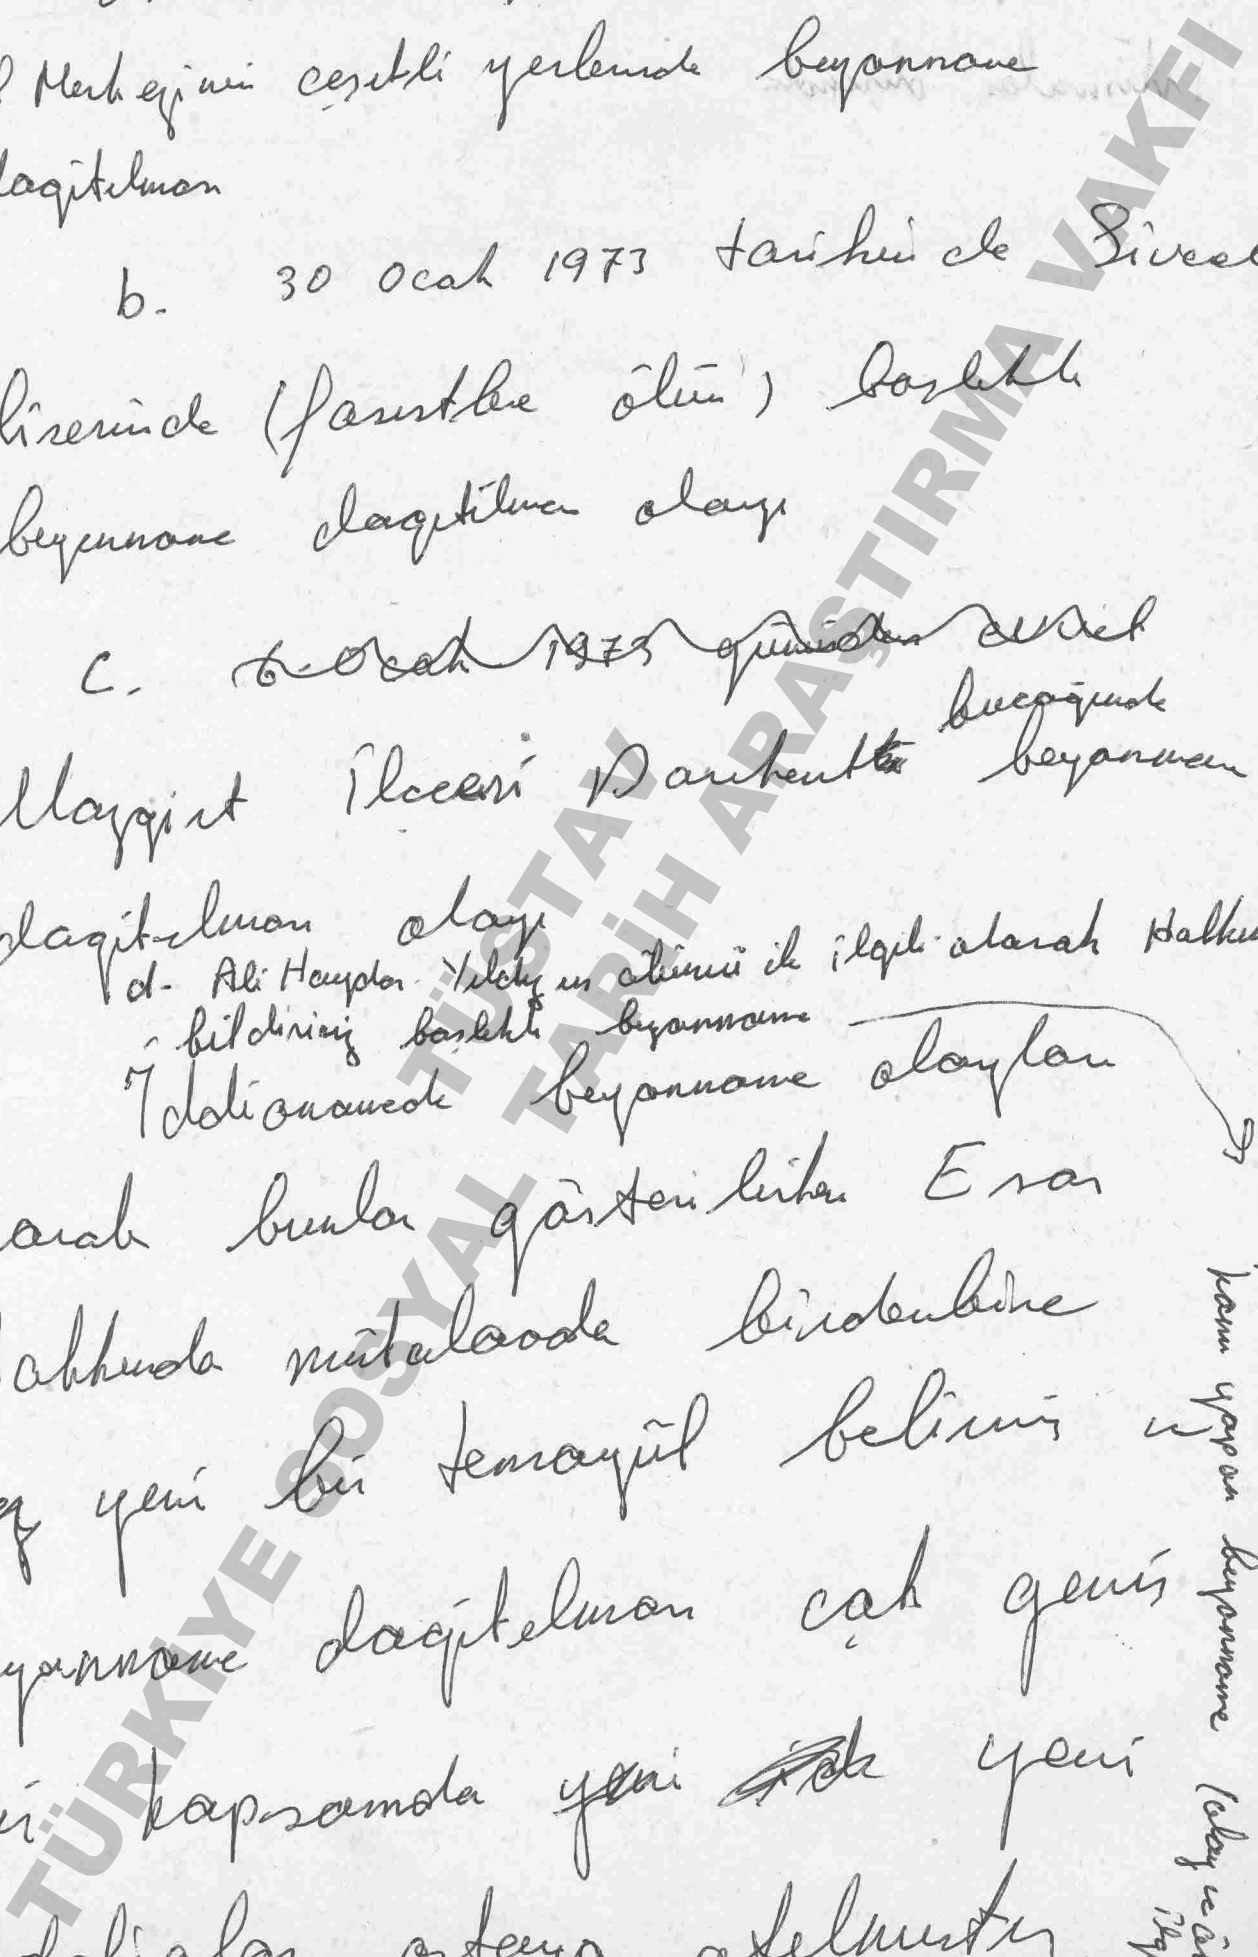 Merkezinin çeşitli yerlerinde beyanname
dağıtılması
b. 30 Ocak 1973 tarihinde Siverek
lisesinde (faşistlere ölüm) başlıklı
beyanname dağıtılması olayı
c. 6 Ocak 1973 gününden evvel
bucağında
Mazgirt İlçesi Darıkent beyanname
dağıtılması olayı
d- Ali Haydar Yıldız ın ölümü ile ilgili olarak Halkın
bildirisi başlıklı beyanname
İddianamede beyanname olayları
olarak bunlar gösterilirken Esas
hakkında mütalaada birdenbire
yeni bir temayül belirmiş ve
beyanname dağıtılması çok geniş
kapsamda yeni yeni
ortaya atılmıştır
konu yapan beyanname (olay
TÜSTAV
TÜRKİYE SOSYAL TARİH ARAŞTIRMA VAKFI